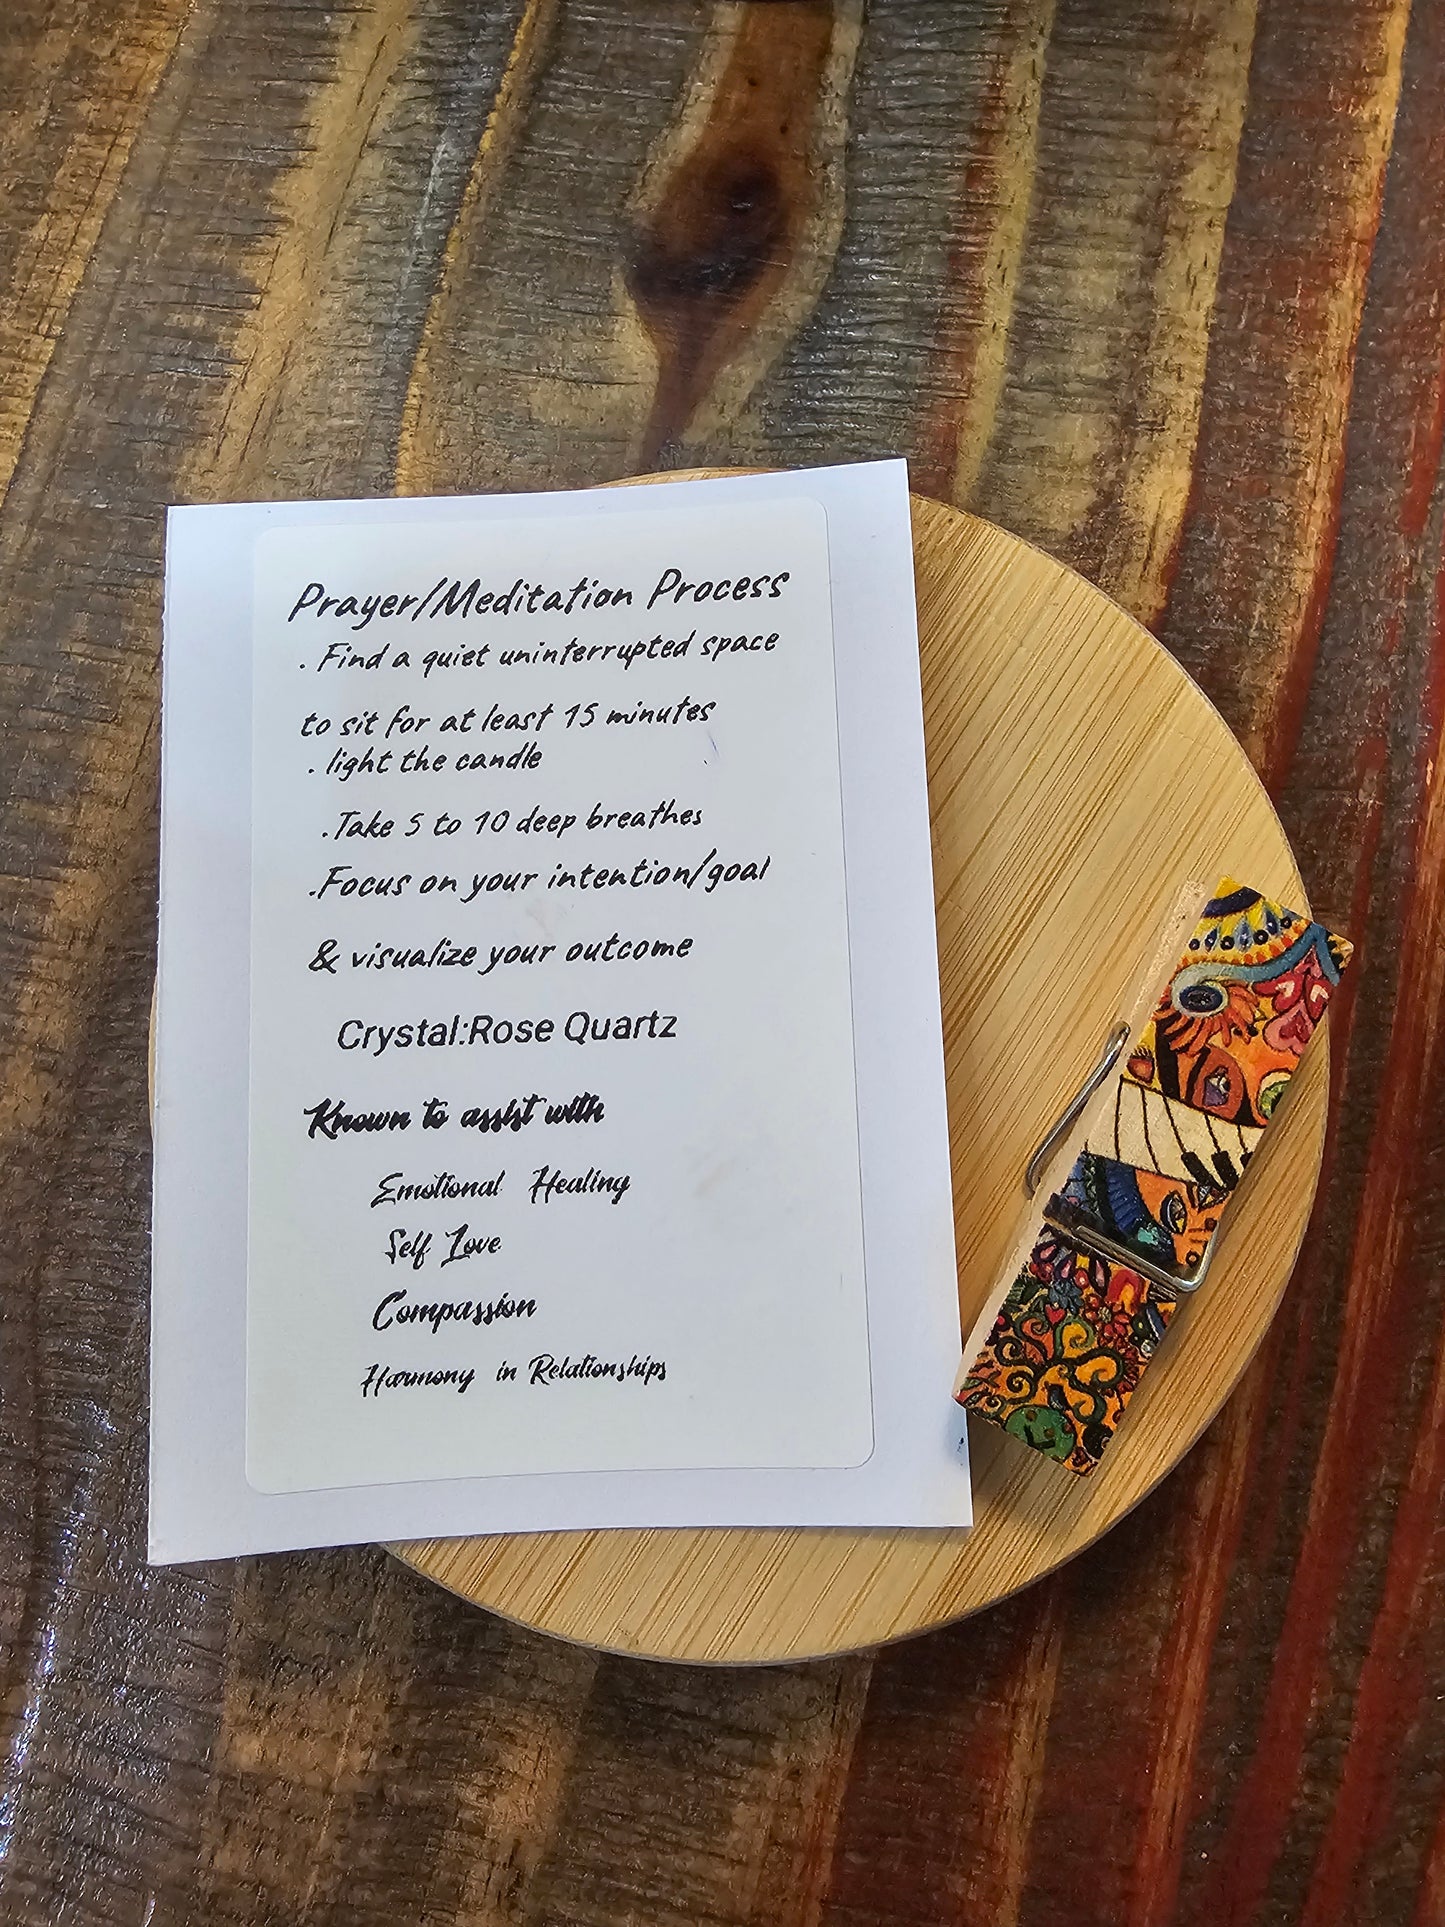 Prayer/Meditation Process
. Find a quiet uninterrupted space
to sit for at least 15 minutes
. light the candle
.Take 5 to 10 deep breathes
.Focus on your intention/goal
& visualize your outcome
Crystal:Rose Quartz
Known to assist with
Emotional Healing
Self Love
Compassion
Harmony in Relationships